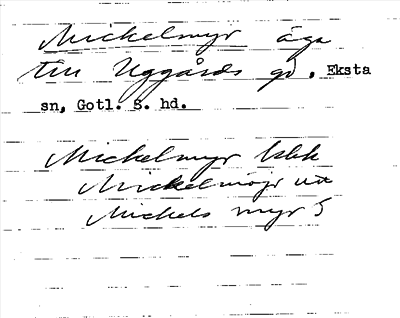 Mickelmyr äga
till Uggårds gd, Eksta
sn, Gotl. S. hd.
Mickelmyr
Mickelmöjr utt
Mickels myr S